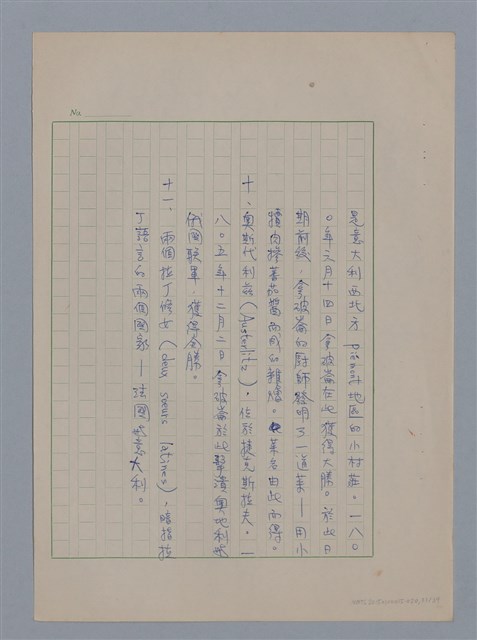 No.
是意大利西北方 Piémont地區的小村莊。一八〇
〇年六月十四日拿破崙在此獲得大勝。於此日
期前後，拿破崙的廚師發明了一道菜——用小
犢肉摻蕃茄醬而成的雜燴。菜名由此而得。
十、奧斯代利兹（Austerlitz），位於捷克斯拉夫。一
八〇五年十二月二日拿破崙於此擊潰奧地利
俄國聯軍，獲得全勝。
十一、兩個拉丁修女（deux sœurs latines），暗指拉
丁語言的兩個國家——法國與意大利。